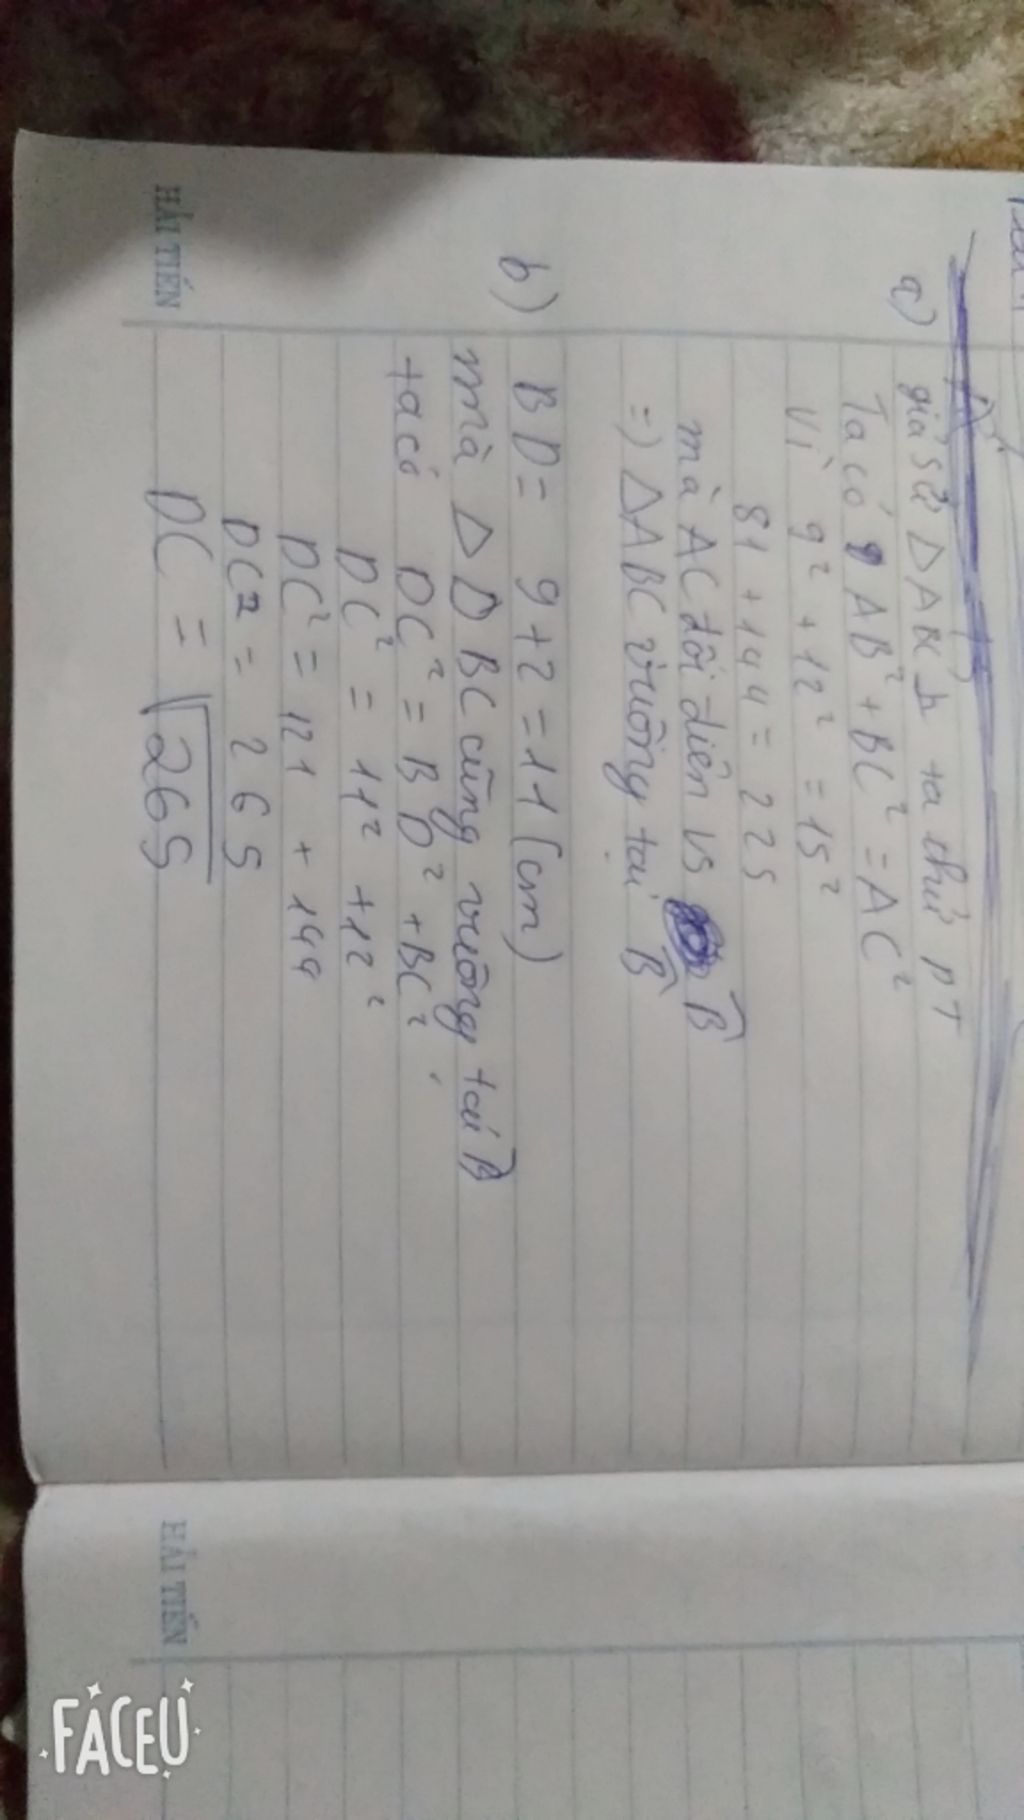 a) giả sử △ABC ⊥ ta thử PT
Ta có AB² + BC² = AC²
Vì 9² + 12² = 15²
81 + 144 = 225
mà AC đối diên vs B̂
=) △ABC vuông tại B̂
b) BD = 9+2 = 11 (cm)
mà △ DBC cũng vuông tại B̂
ta có DC² = BD² + BC²
DC² = 11² + 12²
DC² = 121 + 144
DC² = 265
DC = √265
HẢI TIẾN
HẢI TIẾN
FACEU